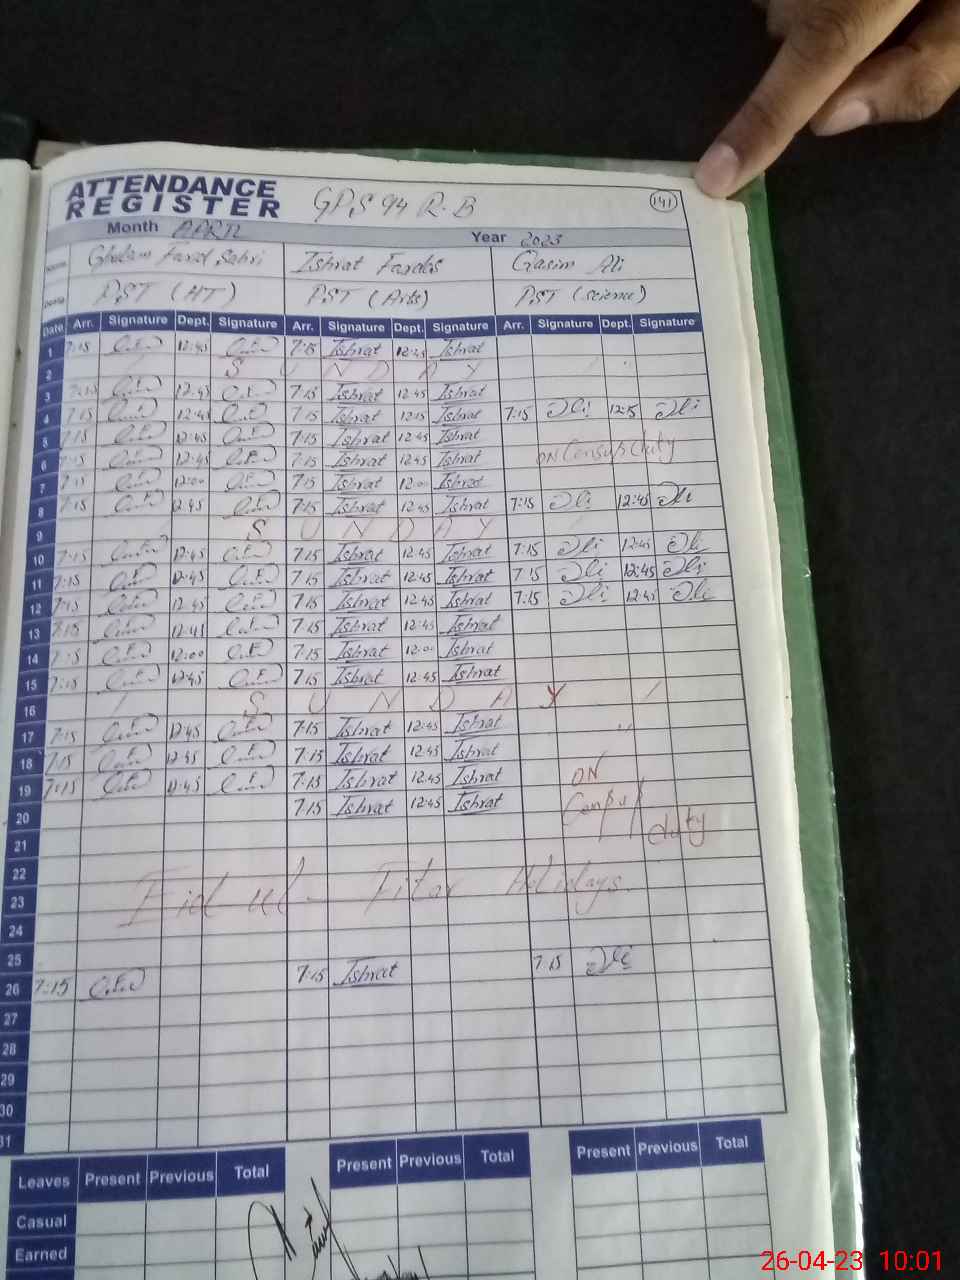 ATTENDANCE
REGISTER GPS 94 R.B 141
Month APRIL Year 2023
Name Ghulam Farid Sabri Ishrat Fardos Qasim Ali
PST (HT) PST (Arts) PST (science)
Date Arr. Signature Dept. Signature Arr. Signature Dept. Signature Arr. Signature Dept. Signature
1 7:15 12:45 7:15 Ishrat Ishrat
2 S U N D A Y
3 12:45 7:15 Ishrat 12:45 Ishrat
4 7:15 12:45 7:15 Ishrat 12:15 Ishrat 7:15 Ali Ali
5 7:15 12:45 7:15 Ishrat 12:45 Ishrat
6 7:15 12:45 7:15 Ishrat 12:45 Ishrat ON Census duty
7 7:15 12:00 7:15 Ishrat 12:00 Ishrat
8 7:15 12:45 7:15 Ishrat 12:45 Ishrat 7:15 Ali 12:45 Ali
9 S U N D A Y
10 7:15 12:45 7:15 Ishrat 12:45 Ishrat 7:15 Ali 12:45 Ali
11 7:15 12:45 7:15 Ishrat 12:45 Ishrat 7:15 Ali 12:45 Ali
12 7:15 12:45 7:15 Ishrat 12:45 Ishrat 7:15 Ali 12:45 Ali
13 7:15 12:45 7:15 Ishrat 12:45 Ishrat
14 7:15 12:00 7:15 Ishrat 12:00 Ishrat
15 7:15 12:45 7:15 Ishrat 12:45 Ishrat
16 S U N D A Y
17 7:15 12:45 7:15 Ishrat 12:45 Ishrat "
18 7:15 12:45 7:15 Ishrat 12:45 Ishrat
19 7:15 12:45 7:15 Ishrat 12:45 Ishrat ON
20 7:15 Ishrat 12:45 Ishrat
21 duty
22
23 Eid ul- Fitar Holidays.
24
25
26 7:15 7:15 Ishrat 7:15 Ali
27
28
29
30
31
Leaves Present Previous Total Present Previous Total Present Previous Total
Casual
Earned
26-04-23 10:01